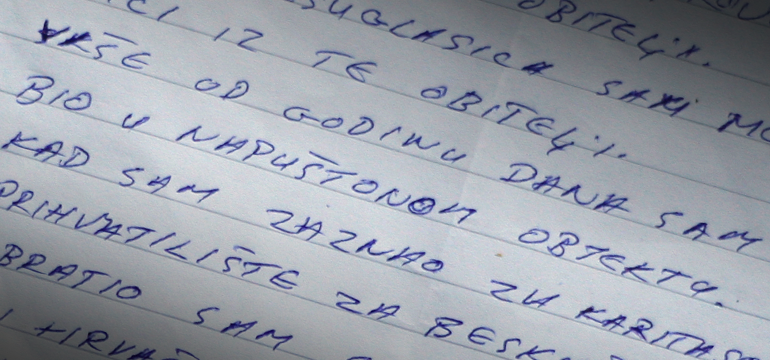 OBITELJI.
SUGLASICA SAMI MO
CI IZ TE OBITELJI.
VIŠE OD GODINU DANA SAM
BIO U NAPUŠTONOM OBJEKTU.
KAD SAM ZAZNAO ZA KARITAS
PRIHVATILIŠTE ZA BESK
BRATIO SAM